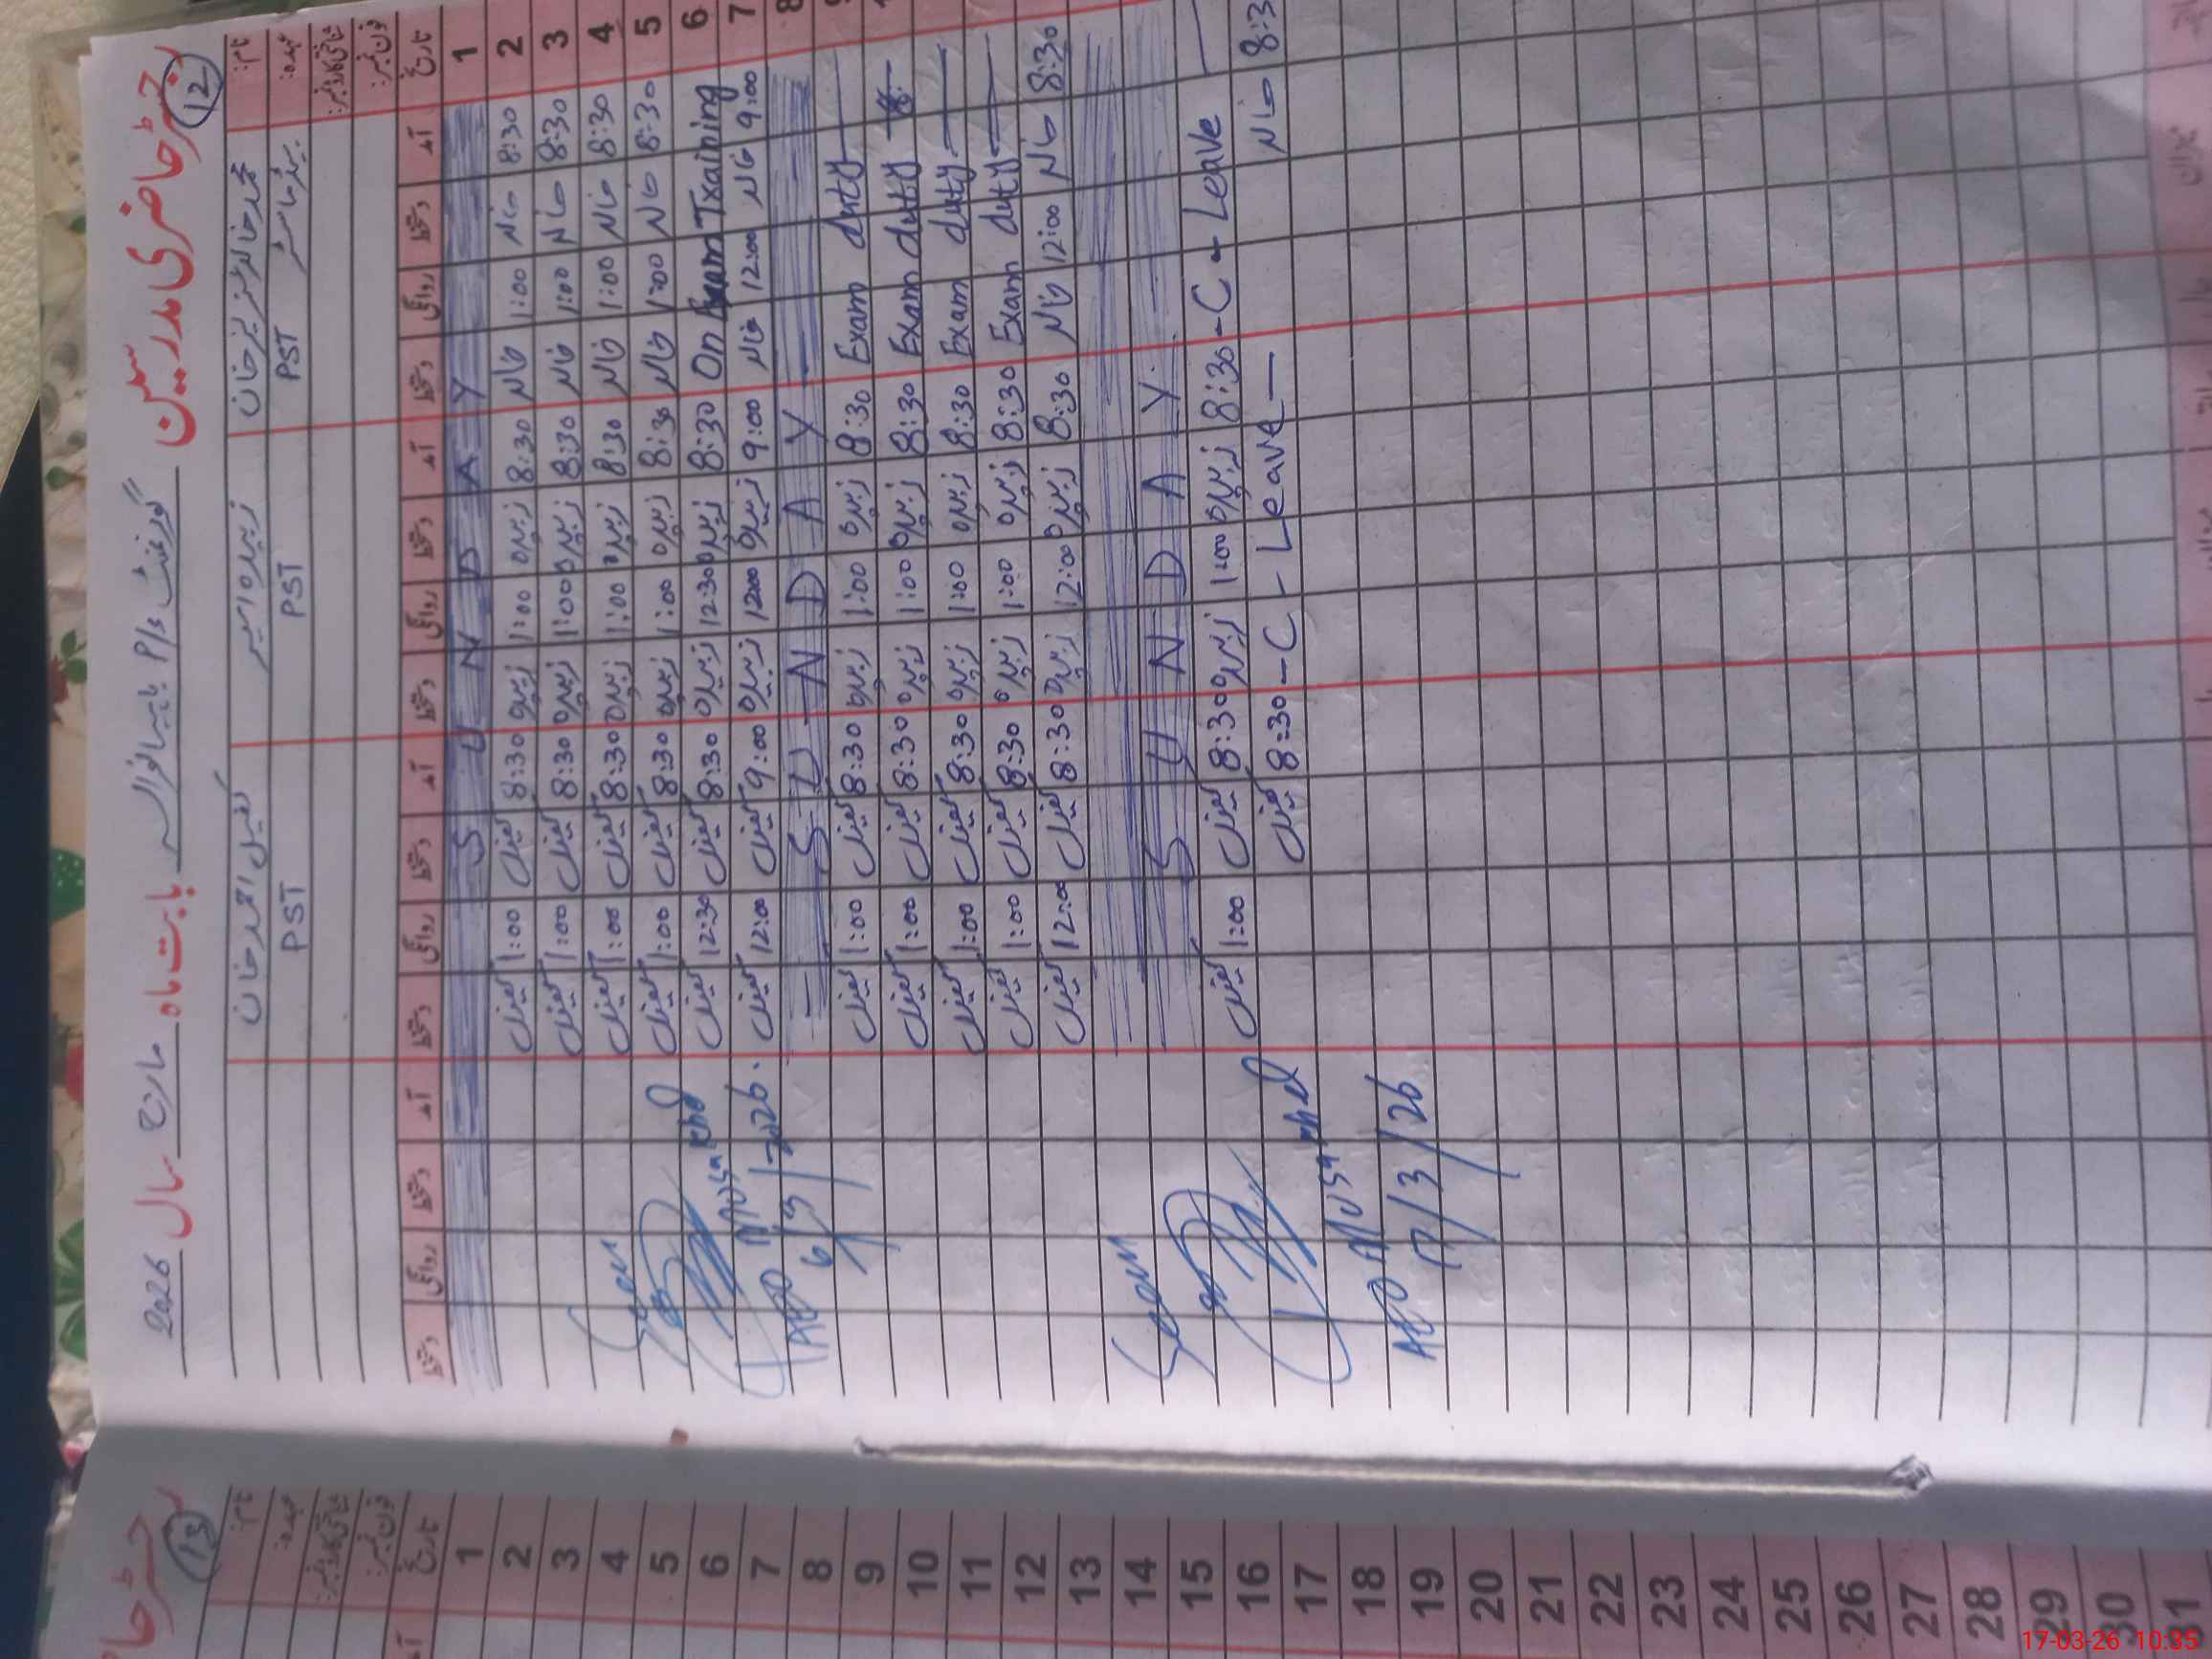 رجسٹر حاضری مدرسین گورنمنٹ P/S بابت ماہ مارچ سال 2026
12
نام: محمد خالد عزیز خان زبیدہ کفیل احمد خان
عہدہ: PST PST PST
شناختی کارڈ نمبر:
فون نمبر:
تاریخ آمد دستخط روانگی دستخط آمد دستخط روانگی دستخط آمد دستخط روانگی دستخط آمد دستخط روانگی دستخط
1 S U N D A Y
2 8:30 1:00 8:30 زبیدہ 1:00 زبیدہ 8:30 کفیل 1:00 کفیل
3 8:30 1:00 8:30 زبیدہ 1:00 زبیدہ 8:30 کفیل 1:00 کفیل
4 8:30 1:00 8:30 زبیدہ 1:00 زبیدہ 8:30 کفیل 1:00 کفیل
5 8:30 1:00 8:30 زبیدہ 1:00 زبیدہ 8:30 کفیل 1:00 کفیل
6 On Exam Training 8:30 زبیدہ 12:30 زبیدہ 8:30 کفیل 12:30 کفیل
7 9:00 12:00 9:00 زبیدہ 12:00 زبیدہ 9:00 کفیل 12:00 کفیل
8 S U N D A Y
Exam duty 8:30 زبیدہ 1:00 زبیدہ 8:30 کفیل 1:00 کفیل
Exam duty 8:30 زبیدہ 1:00 زبیدہ 8:30 کفیل 1:00 کفیل
Exam duty 8:30 زبیدہ 1:00 زبیدہ 8:30 کفیل 1:00 کفیل
Exam duty 8:30 زبیدہ 1:00 زبیدہ 8:30 کفیل 1:00 کفیل
8:30 12:00 8:30 زبیدہ 12:00 زبیدہ 8:30 کفیل 12:00 کفیل
S U N D A Y
C - Leave 8:30 زبیدہ 1:00 زبیدہ 8:30 کفیل 1:00 کفیل
8:3 C - Leave 8:30 کفیل
Seen
AEO Musa khel
6/3/2026
Seen
AEO Musa khel
17/3/26
13
نام:
عہدہ:
شناختی کارڈ نمبر:
فون نمبر:
تاریخ
1
2
3
4
5
6
7
8
9
10
11
12
13
14
15
16
17
18
19
20
21
22
23
24
25
26
27
28
29
30
31
17-03-26 10:35